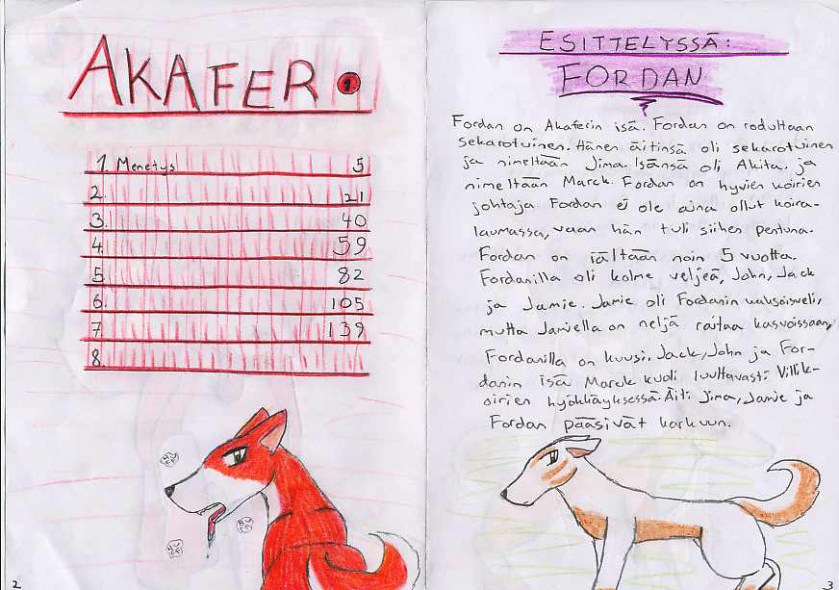 AKAFER 1
1. Menetys 5
2. 21
3. 40
4. 59
5. 82
6. 105
7 139
8.
2
ESITTELYSSÄ:
FORDAN
Fordan on Akaferin isä. Fordan on rodultaan
sekarotuinen. Hänen äitinsä oli sekarotuinen
ja nimeltään Jima. Isänsä oli Akita, ja
nimeltään Marck. Fordan on hyvien koirien
johtaja. Fordan ei ole aina ollut koira-
laumassa, vaan hän tuli siihen pentuna.
Fordan on iältään noin 5 vuotta.
Fordanilla oli kolme veljeä, John, Jack
ja Jamie. Jamie oli Fordanin kaksoisveli,
mutta Jamiella on neljä raitaa kasvoissaan,
Fordanilla on kuusi. Jack, John ja For-
danin isä Marck kuoli luultavasti Villik-
oirien hyökkäyksessä. Äiti Jima, Jamie ja
Fordan pääsivät karkuun.
3